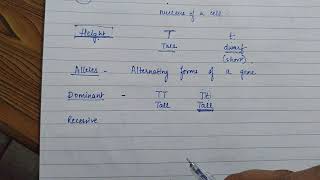 nucleus of a cell
Height T t
Tall dwarf
(short)
Alleles - Alternating forms of a gene
Dominant - TT Tt
Tall Tall
Recessive